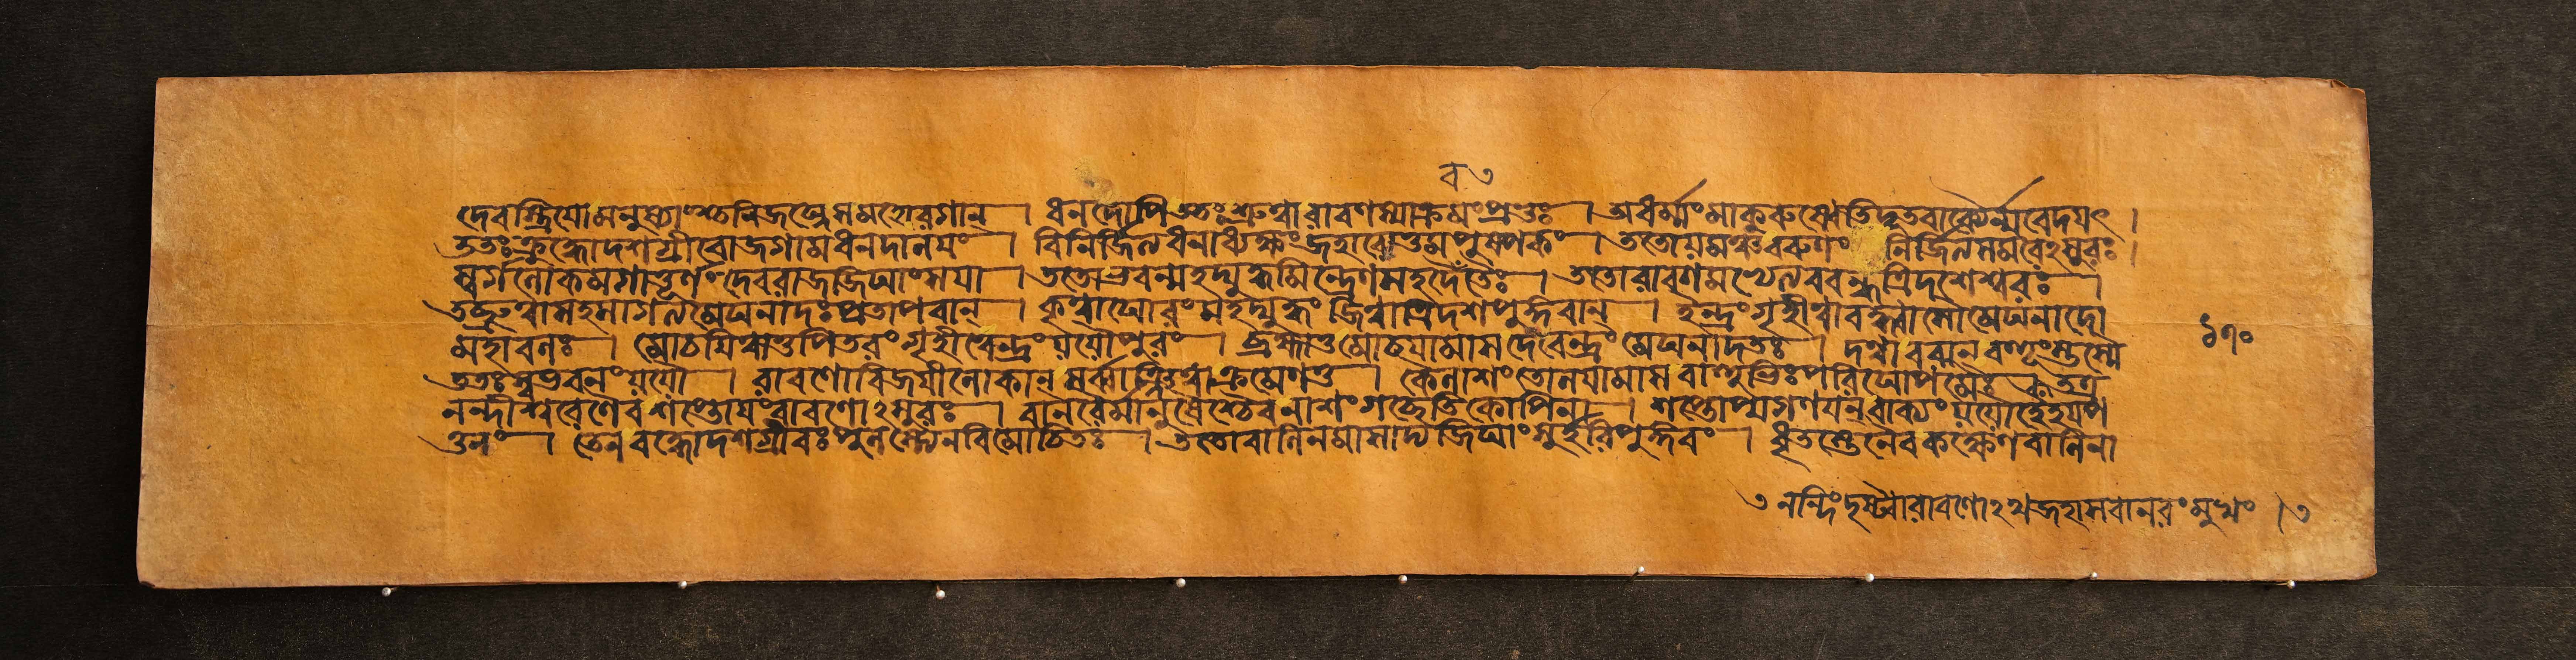 দেবাস্ত্রিয়োমনুষ্যাংশ্চনিজঘ্নেসমহোরগান্ । ধনদোপিততঃশ্রুত্বারাবণস্যাক্রমংপ্রভুঃ । অধর্ম্মংমাকুরুষ্বেতিদূতবাক্যৈর্ন্যবেদয়ৎ ।
ততঃক্রুদ্ধোদশগ্রীবোজগামধনদালয়ং । বিনির্জিত্যধনাধ্যক্ষংজহারোত্তমপুষ্পকং । ততোয়মঞ্চবরুণং নির্জিত্যসমরেঽসুরঃ ।
স্বর্গলোকমগাত্তূর্ণংদেবরাজজিঘাংসয়া । ততোভবন্মহদ্যুদ্ধমিন্দ্রেণসহদৈবতৈঃ । ততোরাবণমভ্যেত্যববন্ধত্রিদশেশ্বরঃ ।
তচ্ছ্রুত্বাসহসাগত্যমেঘনাদঃপ্রতাপবান্ । কৃত্বাঘোরংমহদ্যুদ্ধংজিত্বাত্রিদশপুঙ্গবান্ । ইন্দ্রংগৃহীত্বাবদ্ধ্বাসৌমেঘনাদো
মহাবলঃ । মোচয়িত্বাতুপিতরংগৃহীত্বেন্দ্রংয়য়ৌপুরং । ব্রহ্মাতুমোচয়ামাসদেবেন্দ্রংমেঘনাদতঃ । দত্ত্বাবরান্বহূংস্তস্মৈ
ততঃস্বভবনংয়য়ৌ । রাবণোবিজয়ীলোকান্সর্ব্বাঞ্জিত্বাক্রমেণতু । কৈলাশংতোলয়ামাসবাহুভিঃপরিঘোপমৈঃ তত্র
নন্দীশ্বরেণৈবশপ্তোয়ংরাবণোঽসুরঃ । বানরৈর্মানুষৈশ্চৈবনাশংগচ্ছেতিকোপিনা । শপ্তোপ্যগণয়ন্বাক্যংয়য়ৌহৈহয়প
ত্তনং । তেনবদ্ধোদশগ্রীবঃপুলস্ত্যেনবিমোচিতঃ । জিঘাংসুর্হরিপুঙ্গবং । ধৃতস্তেনৈবকক্ষেণবালিনা
নন্দিংদৃষ্ট্বারাবণোঽথজহাসবানরংমুখং ।
১৭০